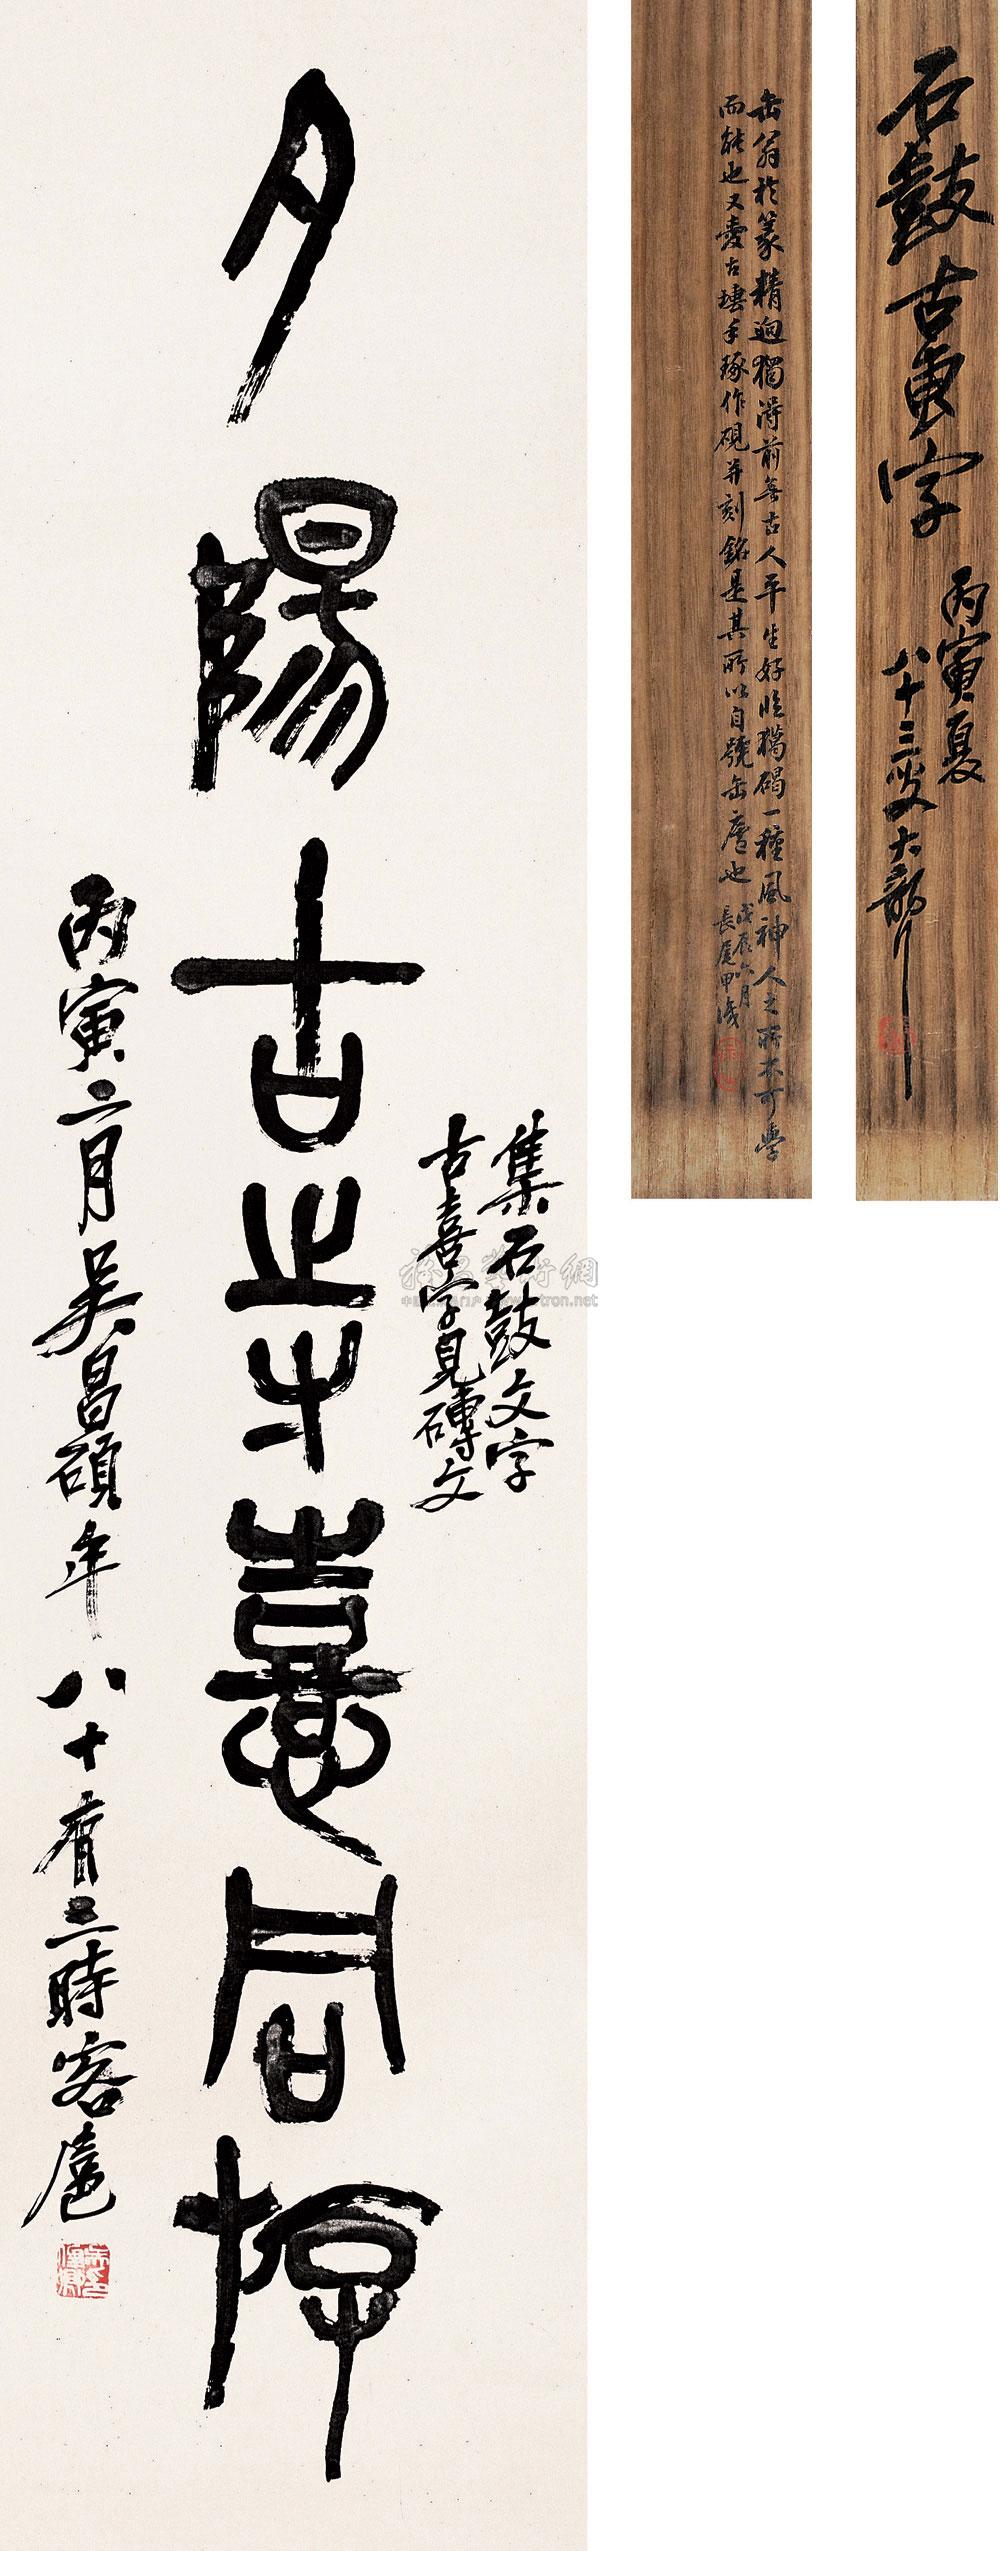 石鼓古専字
丙寅夏
八十三叟大聾
缶翁於篆精迥獨得前無古人平生好臨獵碣一種風神人之所不可學
而能也又愛古塼手琢作硯并刻銘是其所以自號缶廬也
戊辰六月
長尾甲識
集石鼓文字
古喜字見磚文
夕陽古步憙同斿
丙寅六月吳昌碩年八十有三時客扈